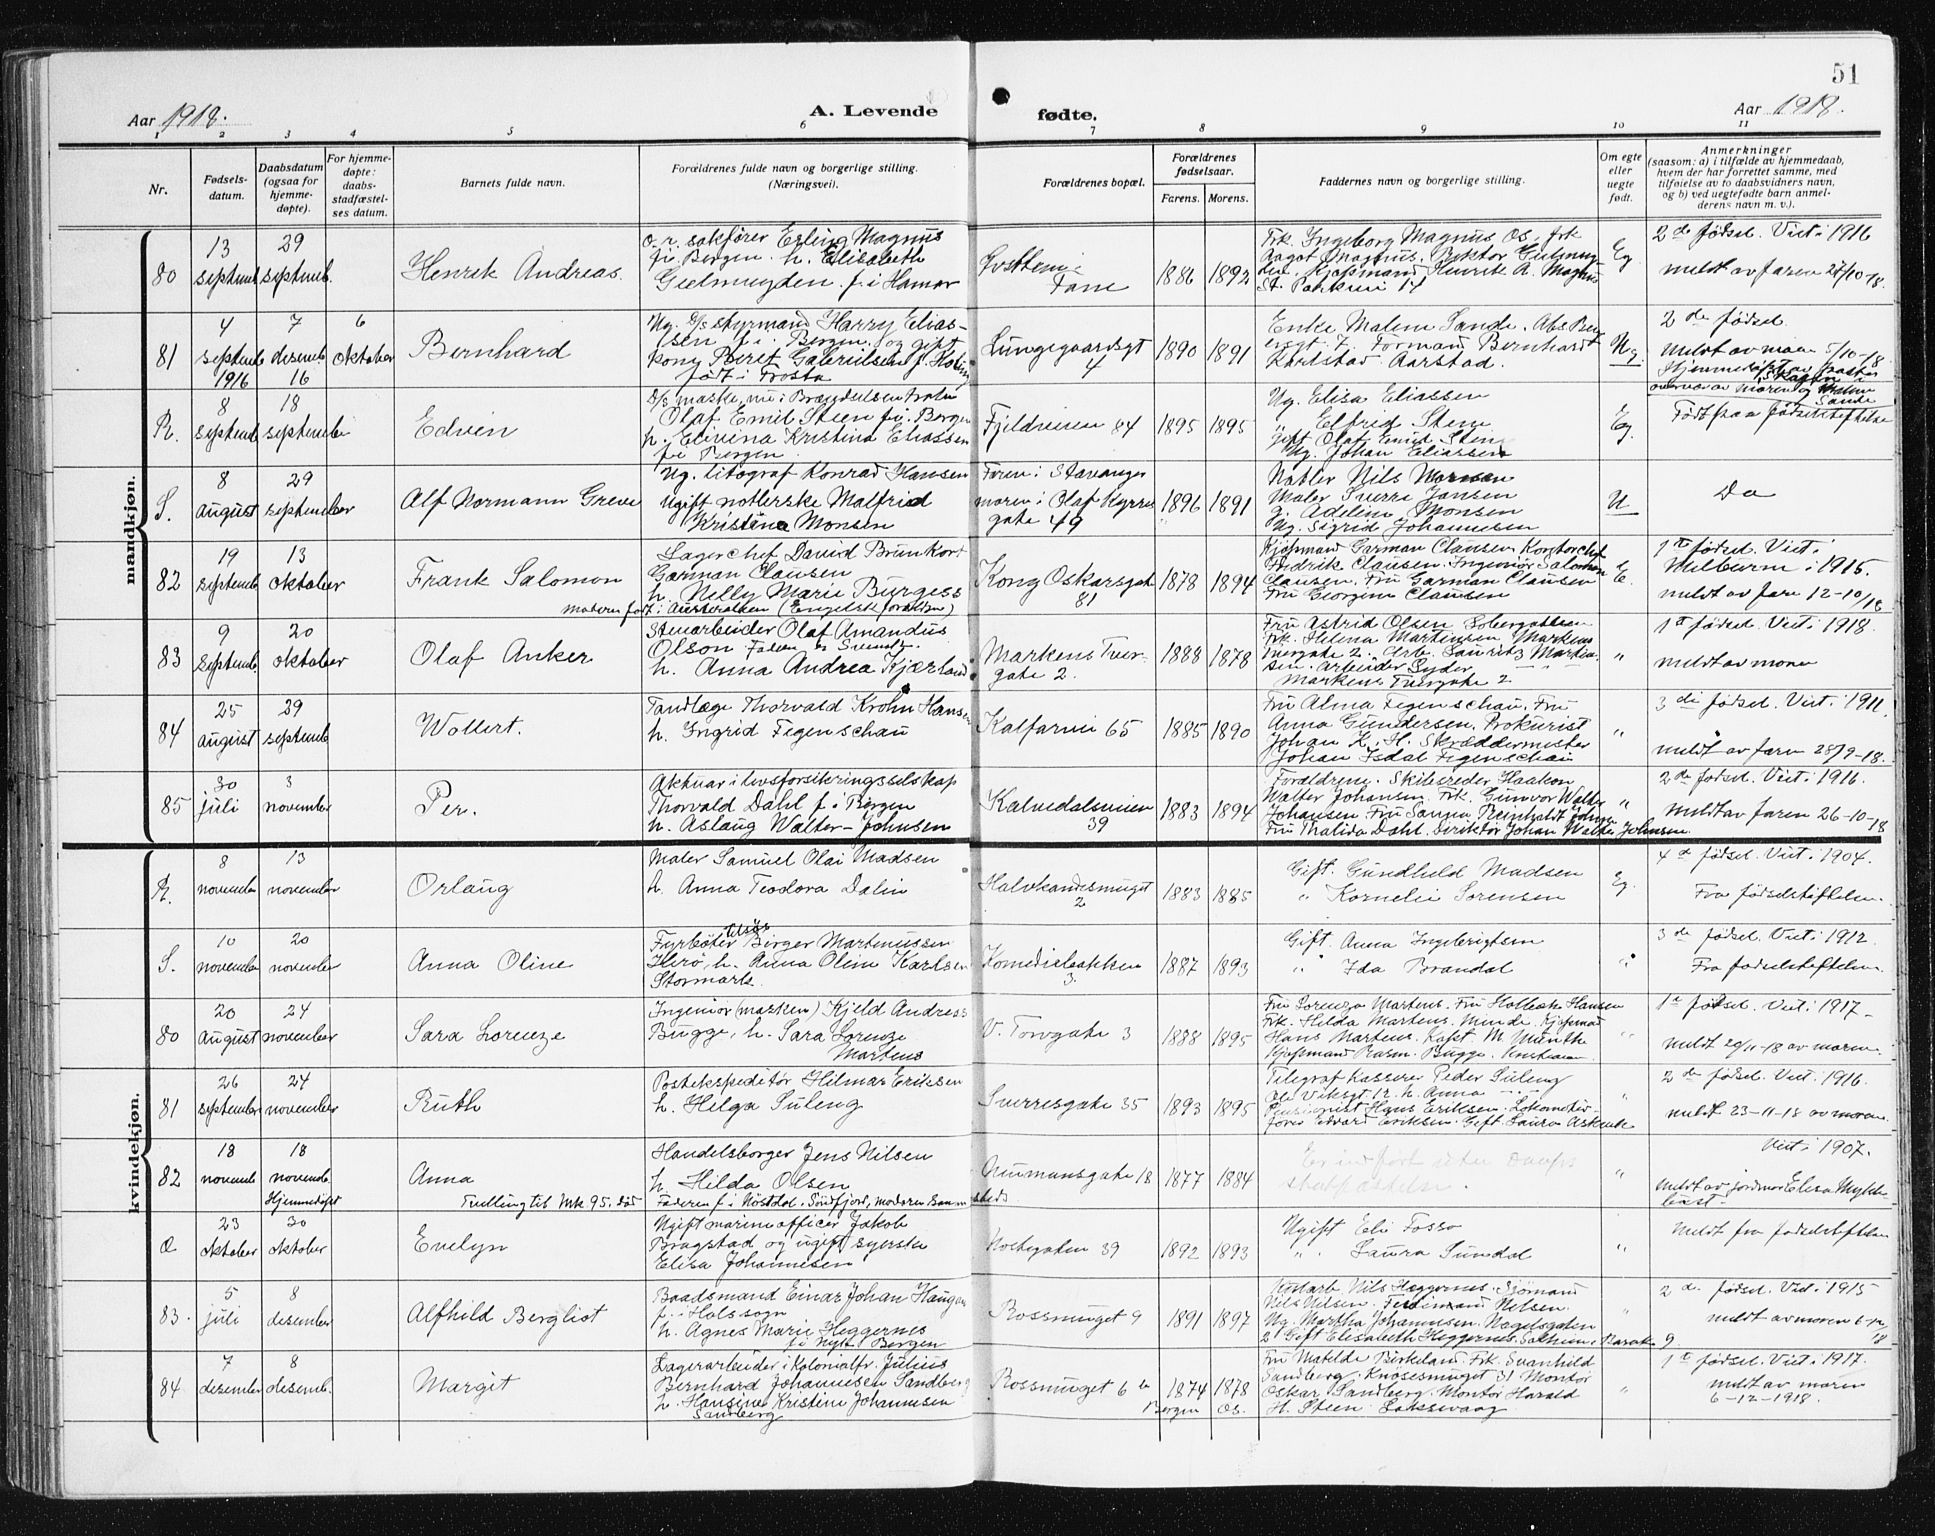 51
Aar 1918.
A. Levende
fødte.
Aar 1918.
1 2 3 4 5 6 7 8 9 10 11
Nr.
Fødsels-
datum.
Daabsdatum
(ogsaa for
hjemme-
døpte).
For hjemme-
døpte:
daabs-
stadfæstel-
ses datum.
Barnets fulde navn.
Forældrenes fulde navn og borgerlige stilling.
(Næringsvei).
Forældrenes bopæl.
Forældrenes
fødselsaar.
Farens. Morens.
Faddernes navn og borgerlige stilling.
Om egte
eller
uegte
født.
Anmerkninger
(saasom: a) i tilfælde av hjemmedaab,
hvem der har forrettet samme, med
tilføielse av to daabsvidners navn,
og b) ved uegtefødte barn anmel-
derens navn m. v.).
mandkjøn.
80
13
septemb
29
septemb.
Henrik Andreas.
o. r. sakfører Erling Magnus
f. i Bergen. h. Elisabeth
f. i Hamar
Fane
1886 1892
Frk. Ingeborg Magnus Os, frk
Aagot Magnus. Rektor
Kjøpmand Henrik A. Magnus
St. Parkvei 14
Eg
2de fødsel. Viet i 1916
meldt av faren 27/10-18.
81
4
septemb
1916
7
desemb
16
6
oktober
Bernhard
Ug. D/s styrmand Harry Elias-
sen f. i. Bergen og gift
kone Beret Gabrielsen f. Holm
født i Frosta
Lungegaardsgt
4
1890 1891
Enke Malene Sande. Abs Ber
Formand Bernhardt
Karlstad Aarstad.
Ug.
2de fødsel.
Meldt av moren 5/10-18
Hjemmedøpt av pastor
overvær av moren og
Sande
R.
8
septemb
18
septembe
Edvin
Olaf Emil Steen f. i. Bergen
h. Elevina Kristina Eliassen
f. i Bergen
Fjeldveien 84
1895 1895
Ug. Elisa Eliassen
" Elfrid Steen
gift Olaf Emil Steen
Ug. Johan Eliassen
Eg.
Født paa fødselsstiftelse
S.
8
august
29
september
Alf Normann Greve
Ug. litograf Konrad Hansen
Ugift notlerske Malfrid
Kristine Monsen
Faren i Stavanger
moren i Olaf Kyrres
gate 49
1896 1891
Nils Monsen
Maler Sverre Jansen
g. Adeline Monsen
Ug. Sigrid Johannesen
U
Do
82
19
septemb
13
oktober
Frank Salomon
Lagerchef David Brunkorst
Garman Clausen
h. Nelly Marie Burgess
Moderen født i Australien (Engelsk forældre)
Kong Oskarsgate
81
1878 1894
Kjøpmand Garman Clausen, Kontorchef
Fredrik Clausen. Ingeniør Salomon
Clausen. Fru Garman Clausen
Fru Georgine Clausen
E.
1te fødsel. Viet i
Melburn i 1915.
meldt av fare 12-10/18
83
9
septemb.
20
oktober
Olaf Anker
Stenarbeider Olaf Amandus
Olson Faren er Svensk.
h. Anna Andrea Kjærland
Markens Tver-
gate 2.
1888 1878
Fru Astrid Olsen
Frk. Helena Martinsen, Markens
Tvergate 2. Arb. Lauritz Martin-
sen. Arbeider
Markens Tvergate 2
"
1te fødsel. Viet i 1918.
meldt av moren
84
25
august
29
septemb
Wollert.
Tandlæge Thorvald Krohn Hansen
h. Ingrid Figenschau
Kalfarvei 65
1885 1890
Fru Alma Figenschau, Fru
Anna Gundersen, Prokurist
Johan K. H. Skræddermester
Johan Isdal Figenschau
"
3die fødsel. Viet i 1911.
meldt av faren 28/9-18.
85
30
juli
3
november
Per.
Aktuar i livsforsikringsselskap
Thorvald Dahl f. i Bergen
h. Aslaug Walter-Johnsen
Kalvedalsveien
39
1883 1894
Forældrene. Skibsreder Haakon
Walter Johnsen. Frk. Gunvor Walter
Johnsen Fru Sanna Reinholdt Johnsen
Fru Matilda Dahl. Direktør Johan Walter Johnsen
"
2de fødsel. Viet i 1916.
meldt av faren 26-10-18
kvindekjøn.
R.
8
november
13
november
Orlaug
Maler Samuel Olai Madsen
h. Anna Teodora Dalin
Halvkandesmuget
2
1883 1885
Gift. Gundhild Madsen
" Kornelie Sorensen
Eg.
4de fødsel. Viet i 1904.
Fra fødselsstiftelsen.
S.
10
november
20
november
Anna Oline
Fyrbøter Birger Martinussen
h. Anna Oline Karlsen
Stormark.
Komediebakken
3.
1887 1893
Gift. Anna Ingebrigtsen
" Ida Brandal
"
3de fødsel. Viet i 1912.
Fra fødselsstiftelsen.
80
20
august
24
november
Sara Lorenze
Ingeniør (maskin) Kjeld Andreas
Bugge, h. Sara Lorenze
Martens
V. Torvgate 3
1888 1895
Fru Lorenze Martens. Fru Hansen
Frk. Hilda Martens. Minde. Kjøpmand
Hans Martens. Kapt. M. Munthe
Kjøpmand Rasm. Bugge.
"
1te fødsel. Viet i 1917.
meldt 20/11-18 av moren.
81
26
september
24
november
Ruth
Postekspeditør Hilmar Eriksen
h. Helga Suleng
Sverresgate 35
1893 1895
Telegraf Kasserer Peder Suleng
h. Anna
Pensionist Hans Eriksen. Lokomotiv-
fører Edvard Eriksen. Gift. Laura
"
2de fødsel. Viet i 1916.
meldt 23-11-18 av moren
82
18
novemb
18
novemb.
Hjemmedøpt
Anna
Tvilling til Mk 95. død
Handelsborger Jens Nilsen
h. Hilda Olsen
Faderen f. i Søndfjord, moderen
Neumansgate 18
1877 1884
Er indført under Daaps
"
Viet i 1907.
meldt av jordmor Elisa Mykle-
bust.
O
23
oktober
30
oktober
Evelyn
Ugift marineofficer Jakob
Bragstad og ugift syerske
Elisa Johannesen
Nostegaten 39
1892 1893
Ugift Eli Fosso
" Laura Sundal
"
Meldt fra fødselsstiftelsen
83.
5
juli
8
desember
Alfhild Bergliot
Baadsmand Einar Johan Haugen
f. i Hols sogn
h. Agnes Marie Heggernes
f. i Nykr. Bergen
Rossmuget 9
1891 1897
Nils Heggernes. Sjømand
Nils Nilsen. Ferdinand Nilsen.
Ug. Martha Johannesen. Nagelsgaten
21 Gift Elisabeth Heggernes. Solheim. Barak 9
"
2de fødsel. Viet i 1915
meldt av moren 6-12/18
84
7
desember
8
desemb.
Margit
Lagerarbeider i Kolonialfr. Julius
Bernhard Johannesen Sandberg
h. Hansine Kristine Johannesen
Sandberg
Rossmuget 6 b
1874 1878
Bergen Os.
Fru Matilde Birkeland. Frk. Svanhild
Sandberg. Knosesmuget 31 Montør
Oskar Sandberg. Montør Harald
H. Steen Laksevaag
"
1te fødsel. Viet i 1917.
meldt av moren
6-12-1918.